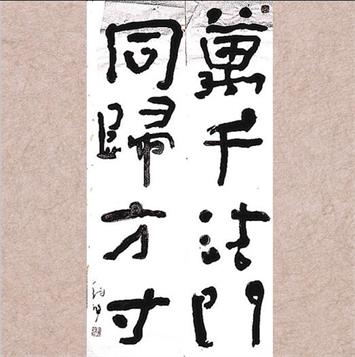 萬千法門
同歸方寸